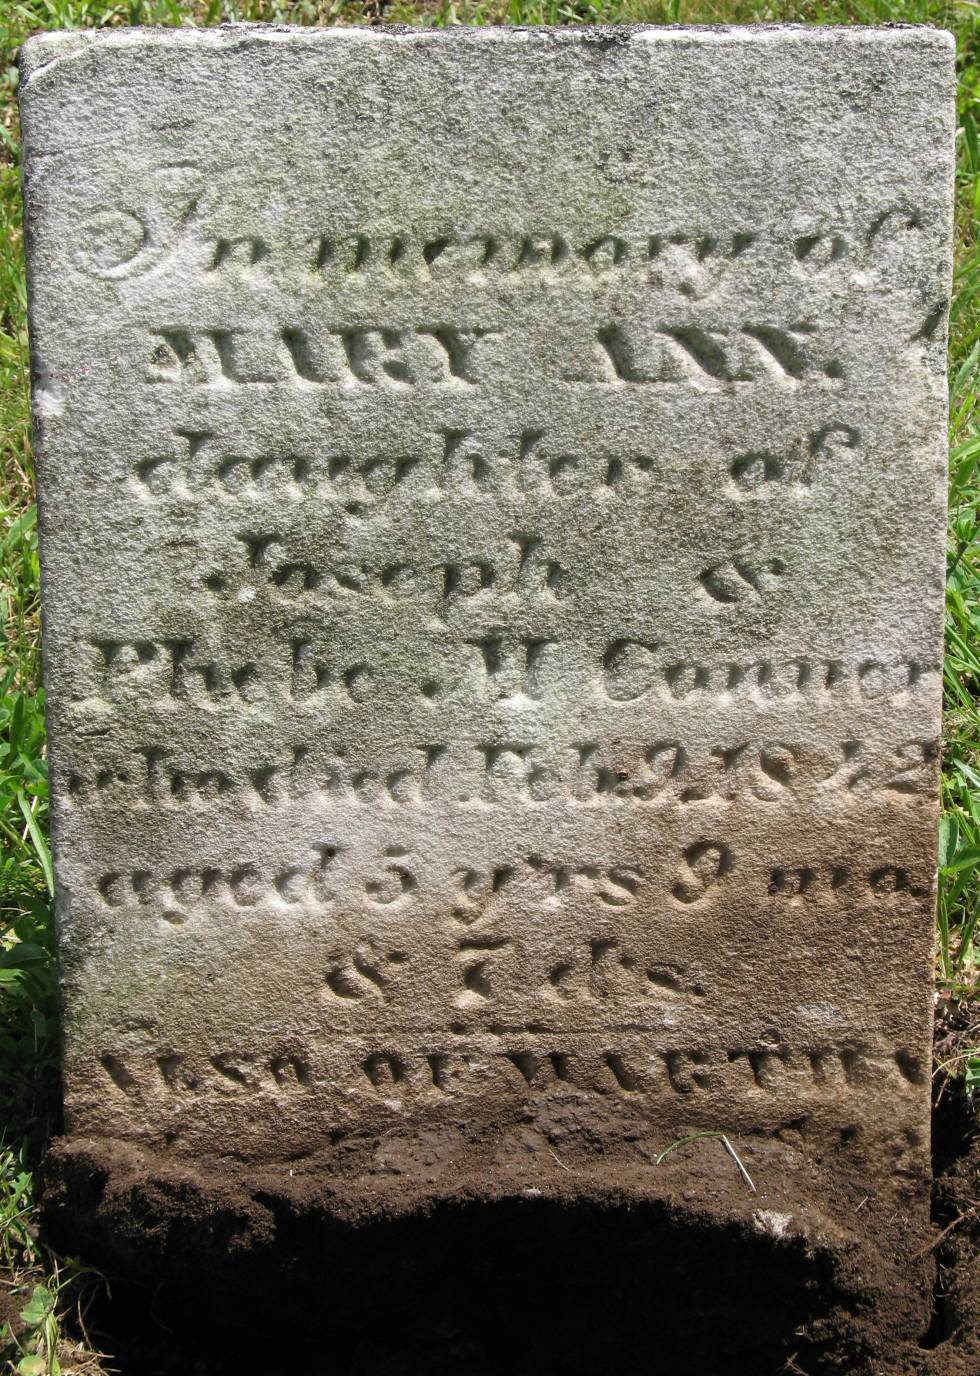 In memory of
MARY ANN.
daughter of
Joseph &
Phebe. M Conner
who died Feb. 9. 1842
aged 5 yrs 9 mo.
& 7 ds.
ALSO OF